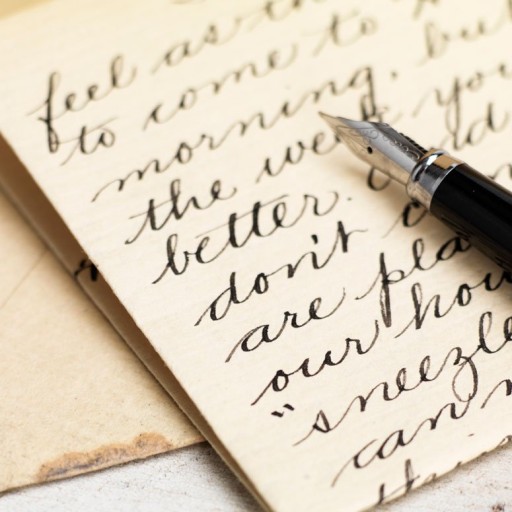 feel as
to come to
morning. but
the we you
better.
don't
are pla
our hou
"sneezle
can